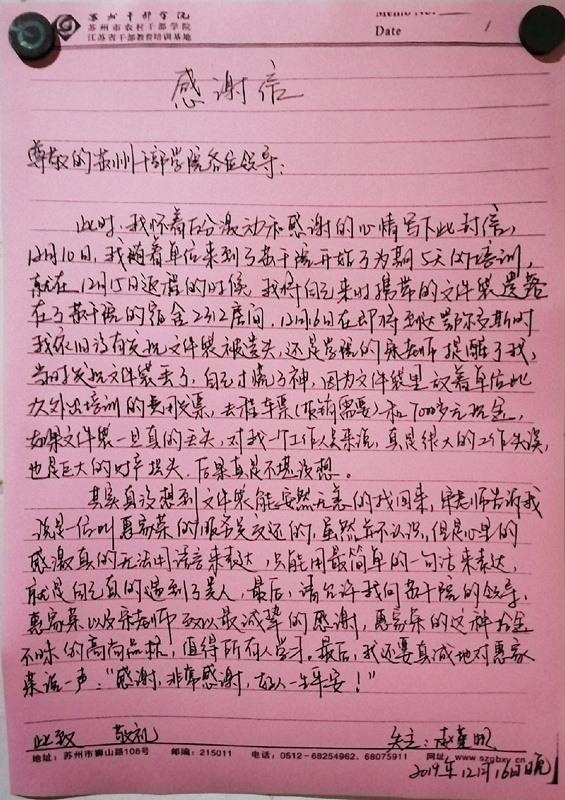 苏州干部学院
苏州市农村干部学院
江苏省干部教育培训基地
Memo No.
Date /
感谢信
尊敬的苏州干部学院各位领导:
此时,我怀着万分激动和感谢的心情写下此封信,
12月10日,我随着单位来到了苏干院开始了为期5天的培训,
就在12月15日返程的时候,我将自己来时携带的文件袋遗落
在了苏干院的宿舍2312房间,12月16日在即将到达鄂尔多斯时
我依旧没有发现文件袋被遗失,还是学院的宋老师提醒了我,
当时发现文件袋丢了,自己才慌了神,因为文件袋里放着单位此
次外出培训的费用发票,去程车票(报销需要)和7000多元现金,
如果文件袋一旦真的丢失,对我一个工作人员来说,真是很大的工作失误,
也是巨大的财产损失,后果真是不堪设想。
其实真没想到文件袋能安然无恙的找回来,宋老师告诉我
说是一位叫惠家菜的服务员交还的,虽然并不认识,但是心里的
感激真的无法用语言来表达,只能用最简单的一句话来表达,
就是自己真的遇到了贵人,最后,请允许我向苏干院的领导,
惠家菜以及宋老师致以最诚挚的感谢,惠家菜的这种拾金
不昧的高尚品格,值得所有人学习,最后,我还要真诚地对惠家
菜说一声:“感谢,非常感谢,好人一生平安!”
此致 敬礼
失主:赵
地址:苏州市狮山路108号 邮编:215011 电话:0512-68254962、68075911 网址:www.szgbxy.cn
2019年12月16日晚